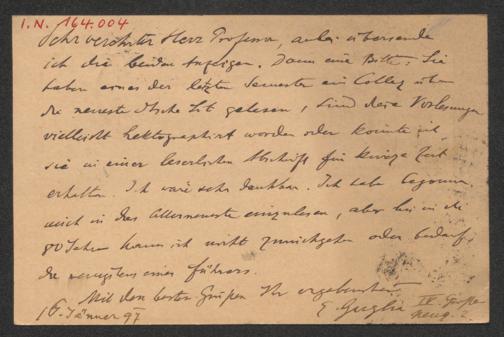 I.N. 164.004
Sehr verehrter Herr Professor, anbei übersende
ich die beiden Anzeigen. Dann eine Bitte: Sie
haben eines der letzten Semester ein Colleg über
die neueste dtsche Lit gelesen, sind diese Vorlesungen
vielleicht hektographirt worden oder könnte ich
sie in einer leserlichen Abschrift für kurze Zeit
erhalten. Ich wäre sehr dankbar. Ich habe begonnen
mich in das Allerneueste einzulesen, aber bis in die
80 Jahre kann ich nicht zurückgehen oder bedarf
die wenigstens eines Führers.
Mit den besten Grüßen Ihr ergebenster
16. Jänner 97 E. Guglia IV.